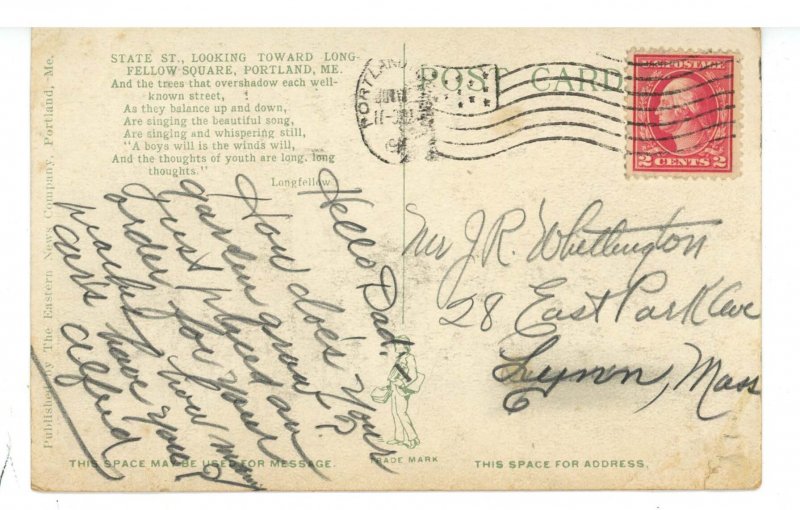 STATE ST., LOOKING TOWARD LONG-
FELLOW SQUARE, PORTLAND, ME.
And the trees that overshadow each well-
known street,
As they balance up and down,
Are singing the beautiful song,
Are singing and whispering still,
"A boys will is the winds will,
And the thoughts of youth are long, long
thoughts."
Longfellow
Hello Dad!
How does your
garden grow?
Just placed an
order for your
how many
cars have you?
Alfred
Published by The Eastern News Company, Portland, Me.
THIS SPACE MAY BE USED FOR MESSAGE.
TRADE MARK
POST CARD
PORTLAND
U.S. POSTAGE
2 CENTS 2
Mr J.R. Whittington
28 East Park Ave
Lynn, Mass
THIS SPACE FOR ADDRESS,